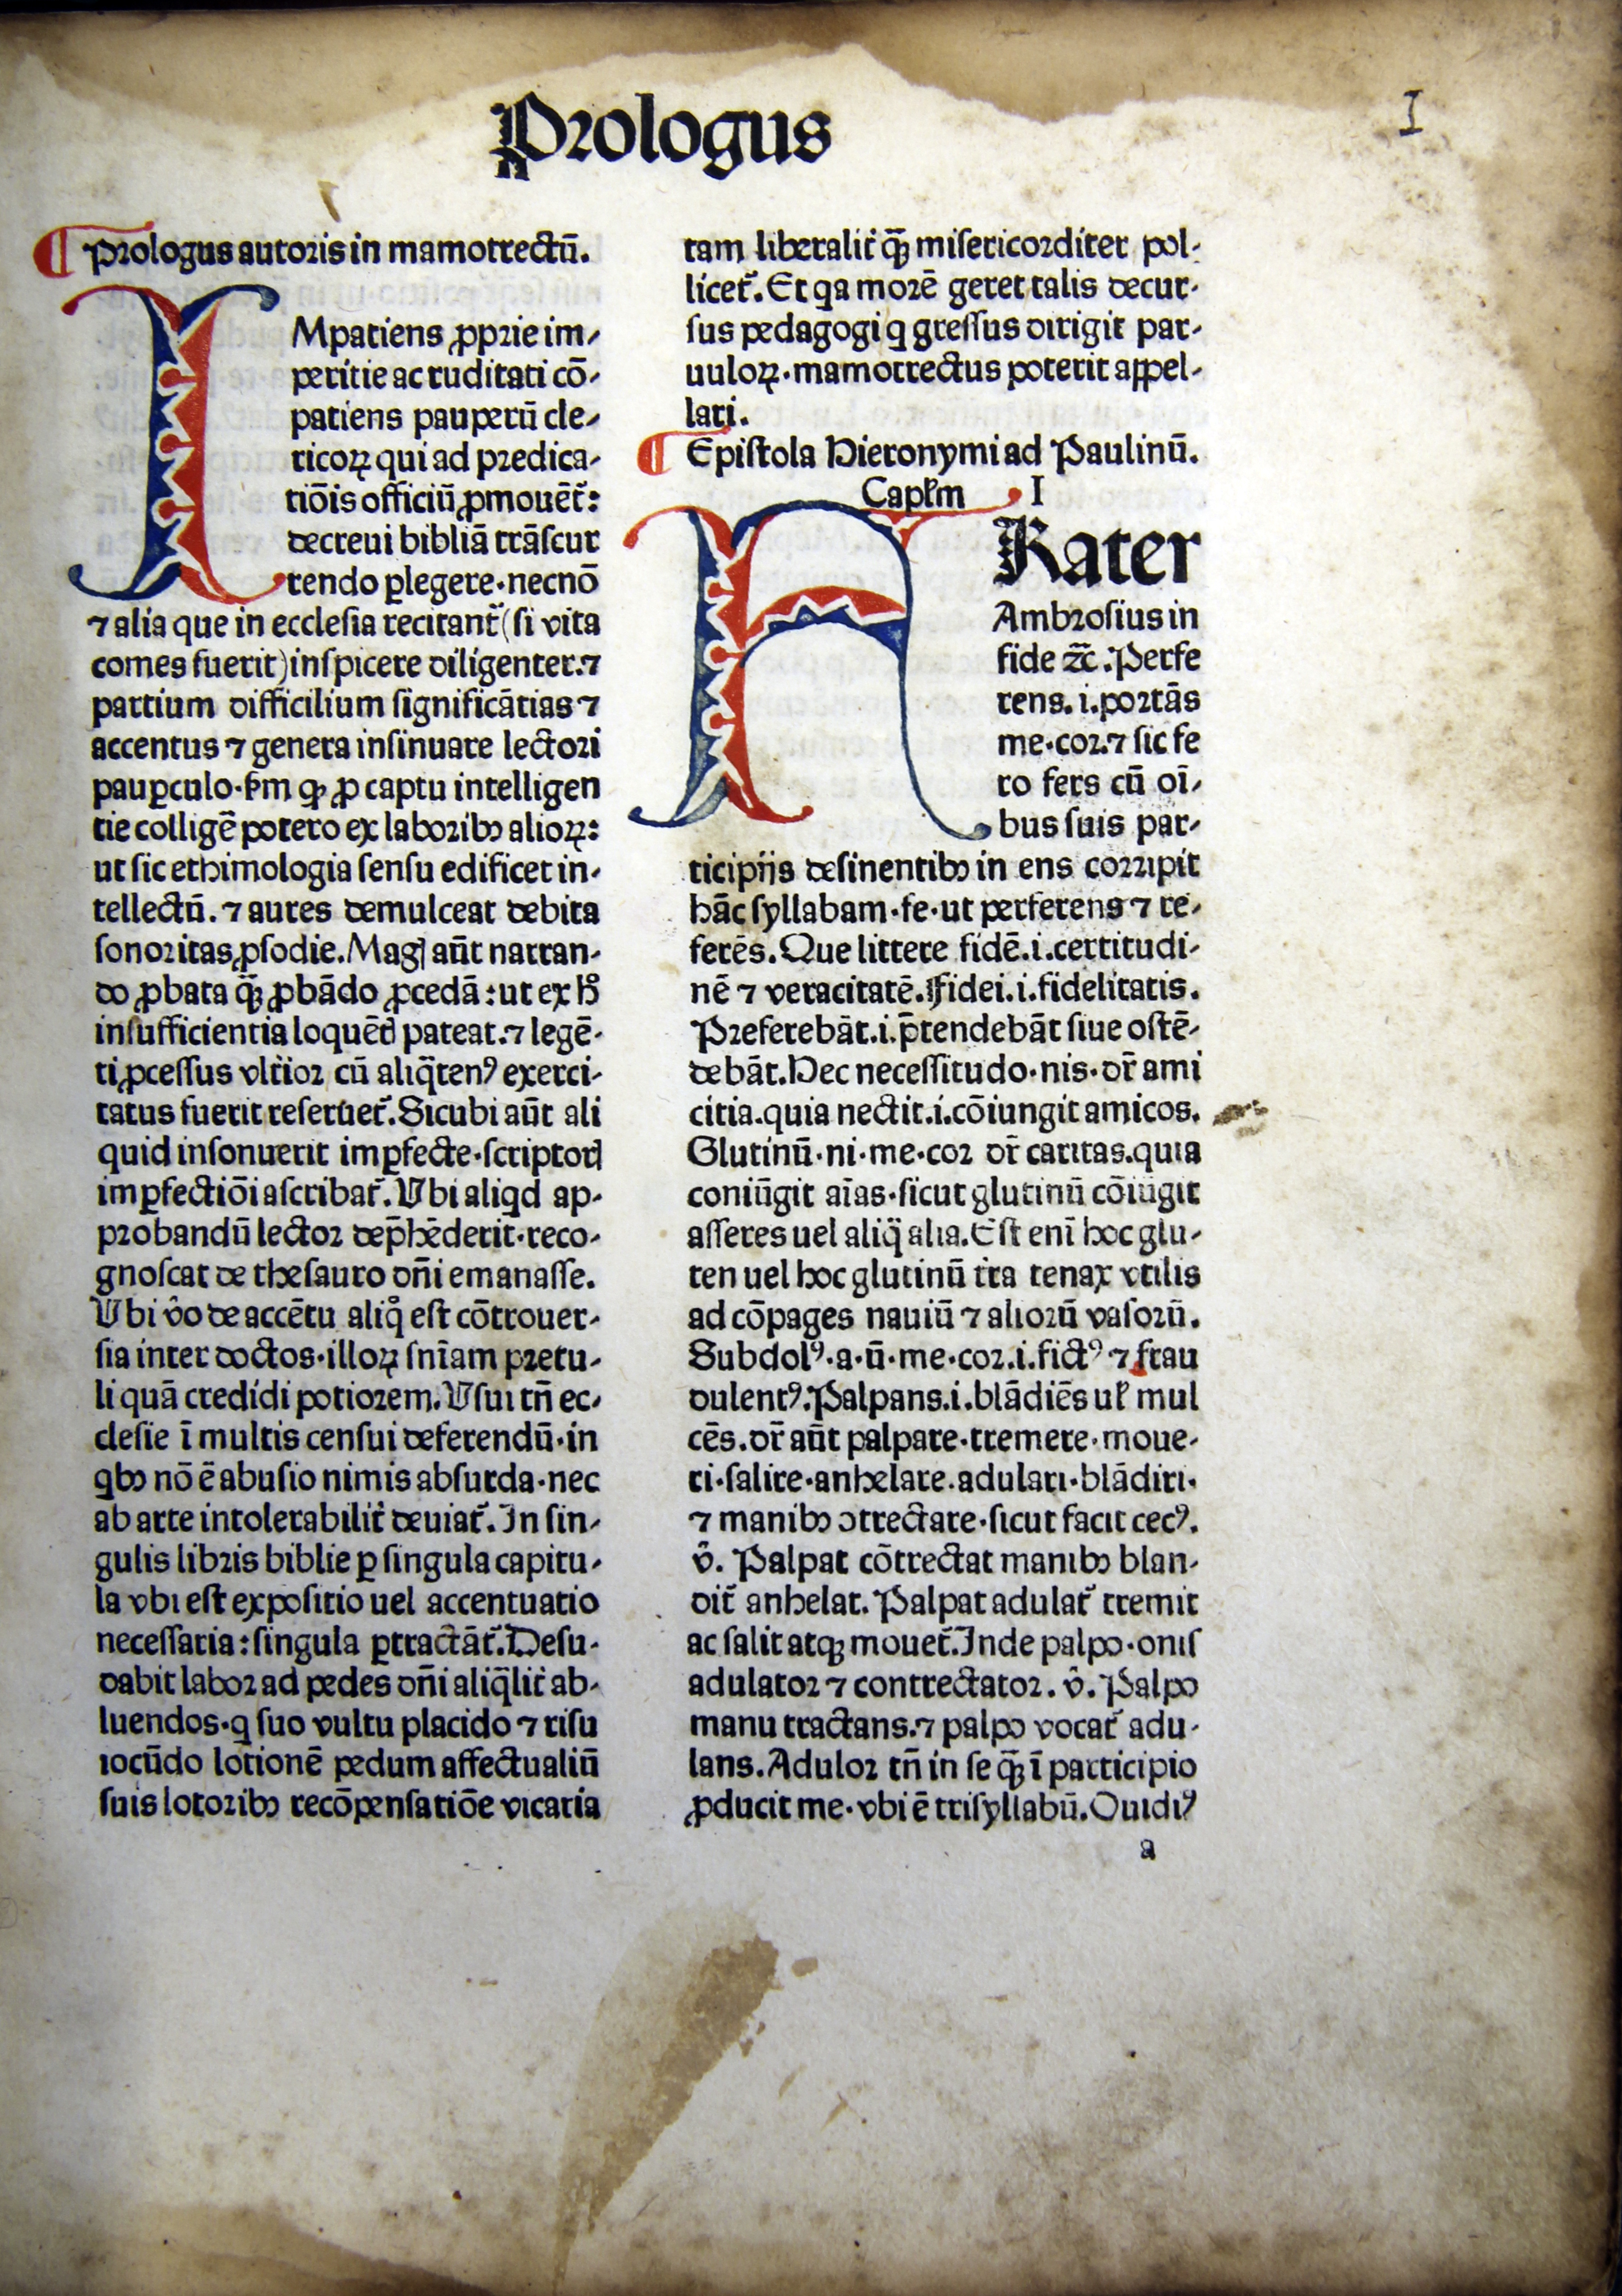 Prologus
I
Prologus autoris in mamotrectū.
IMpatiens ꝓprie im⸗
peritie ac ruditati cō⸗
patiens pauperū cle⸗
ricoꝝ qui ad predica⸗
tiōis officiū ꝓmouēt᷑:
decreui bibliā trāſcur
rendo ꝑlegere·necnō
⁊ alia que in eccleſia recitant᷑ (ſi vita
comes fuerit) inſpicere diligenter.⁊
partium difficilium ſignificātias ⁊
accentus ⁊ genera inſinuare lectori
pauꝑculo·ẜm ꝙ ꝓ captu intelligen
tie colligē potero ex laboribꝰ alioꝝ:
ut ſic ethimologia ſenſu edificet in⸗
tellectū. ⁊ aures demulceat debita
ſonoritas ꝓſodie. Magꝭ aūt narran⸗
do ꝓbata qꝫ̄ ꝓbādo ꝓcedā: ut ex hͦ
inſufficientia loquētꝭ pateat.⁊ legē⸗
ti ꝓceſſus vlt᷑ior cū aliq̈tenꝰ exerci⸗
tatus fuerit reſeruet᷑. Sicubi aūt ali
quid inſonuerit imꝑfecte·ſcriptorꝭ
imꝑfectiōi aſcribat᷑. Vbi aliqd ap⸗
probandū lector dep̄hēderit·reco⸗
gnoſcat de theſauro dn̄i emanaſſe.
Vbi v̂o de accētu aliqͦ eſt cōtrouer⸗
ſia inter doctos·illoꝝ ſnīam pretu⸗
li quā credidi potiorem. Vſui tn̄ ec⸗
cleſie ī multis cenſui deferendū·in
qbꝰ nō ē abuſio nimis abſurda·nec
ab arte intolerabilit᷑ deuiat᷑. In ſin⸗
gulis libris biblie ꝑ ſingula capitu⸗
la vbi eſt expoſitio uel accentuatio
neceſſaria: ſingula ꝑtractāt᷑. Deſu⸗
dabit labor ad pedes dn̄i aliq̄lit᷑ ab⸗
luendos·q ſuo vultu placido ⁊ riſu
iocūdo lotionē pedum affectualiū
ſuis lotoribꝰ recōpenſatiōe vicaria
tam liberalit᷑ qꝫ̄ miſericorditer pol⸗
licet᷑. Et qa morē geret talis decur⸗
ſus pedagogi q greſſus dirigit par⸗
uuloꝝ·mamotrectus poterit appel⸗
lari.
Epiſtola Hieronymi ad Paulinū.
Caplm I
FRater
Ambroſius in
fide ⁊c̄. Perfe
rens. i. portās
me·cor.⁊ ſic fe
ro fers cū oī⸗
bus ſuis par⸗
ticipijs deſinentibꝰ in ens corripit
hāc ſyllabam·fe·ut perferens ⁊ re⸗
ferēs. Que littere fidē.i.certitudi⸗
nē ⁊ veracitatē. Fidei.i.fidelitatis.
Preferebāt.i.p̄tendebāt ſiue oſtē⸗
debāt. Hec neceſſitudo·nis·dr̄ ami
citia.quia nectit.i.cōiungit amicos.
Glutinū·ni·me·cor dr̄ caritas.quia
coniūgit aīas·ſicut glutinū cōiūgit
aſſeres uel aliq̈ alia. Eſt enī hoc glu⸗
ten uel hoc glutinū t᷑ra tenax vtilis
ad cōpages nauiū ⁊ aliorū vaſorū.
Subdolꝰ·a·ū·me·cor.i.fictꝰ ⁊ frau
dulentꝰ. Palpans.i.blādiēs uł mul
cēs. dr̄ aūt palpare·tremere·moue⸗
ri·ſalire·anhelare.adulari·blādiri·
⁊ manibꝰ ↄtrectare·ſicut facit cecꝰ.
v̂. Palpat cōtrectat manibꝰ blan⸗
dit᷑ anhelat. Palpat adulat᷑ tremit
ac ſalit atqꝫ mouet᷑. Inde palpo·onis
adulator ⁊ contrectator. v̂. Palpo
manu tractans.⁊ palpo vocat᷑ adu⸗
lans. Adulor tn̄ in ſe qꝫ̄ ī participio
ꝓducit me·vbi ē triſyllabū. Ouidiꝰ
a